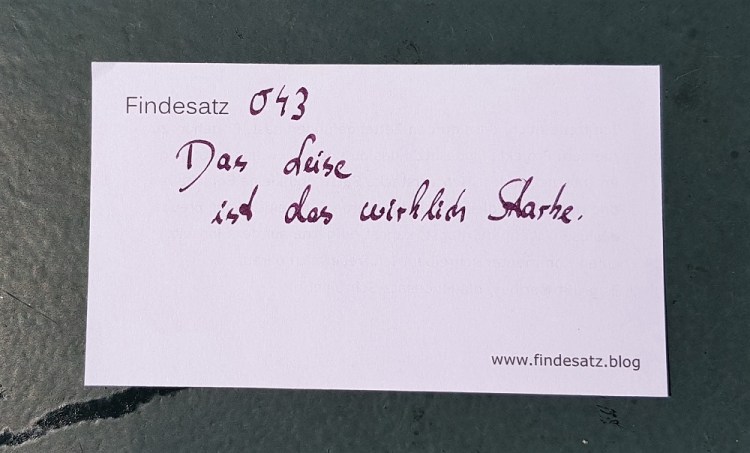 Findesatz 043
Das Leise
ist das wirklich Starke.
www.findesatz.blog